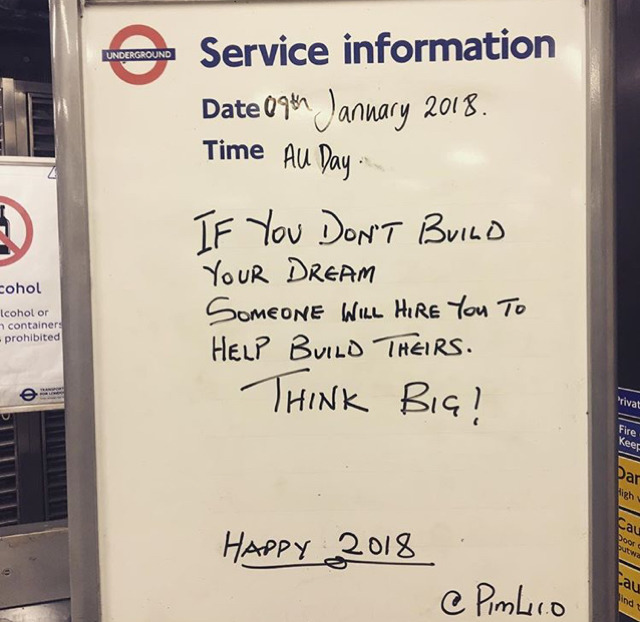 UNDERGROUND
Service information
Date 09th January 2018.
Time All Day.
IF YOU DON'T BUILD
YOUR DREAM
SOMEONE WILL HIRE YOU TO
HELP BUILD THEIRS.
THINK BIG!
HAPPY 2018
@ Pimlico
cohol
lcohol or
n containers
prohibited
TRANSPORT
FOR LONDON
Privat
Fire
Keep
Dan
High v
Cau
Door o
outwa
Cau
Mind t